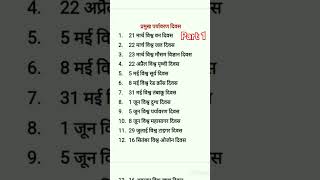 प्रमुख पर्यावरण दिवस
Part 1
1. 21 मार्च विश्व वन दिवस
2. 22 मार्च विश्व जल दिवस
3. 23 मार्च विश्व मौसम विज्ञान दिवस
4. 22 अप्रैल विश्व पृथ्वी दिवस
5. 5 मई विश्व सूर्य दिवस
6. 8 मई विश्व रेड क्रॉस दिवस
7. 31 मई विश्व तंबाकू दिवस
8. 1 जून विश्व दुग्ध दिवस
9. 5 जून विश्व पर्यावरण दिवस
10. 8 जून विश्व महासागर दिवस
11. 29 जुलाई विश्व टाइगर दिवस
12. 16 सितंबर विश्व ओजोन दिवस
4. 22 अप्रै
5. 5 मई वि
6. 8 मई वि
7. 31 मई
8. 1 जून
9. 5 जून
दिवस
दिवस
दिवस
वस